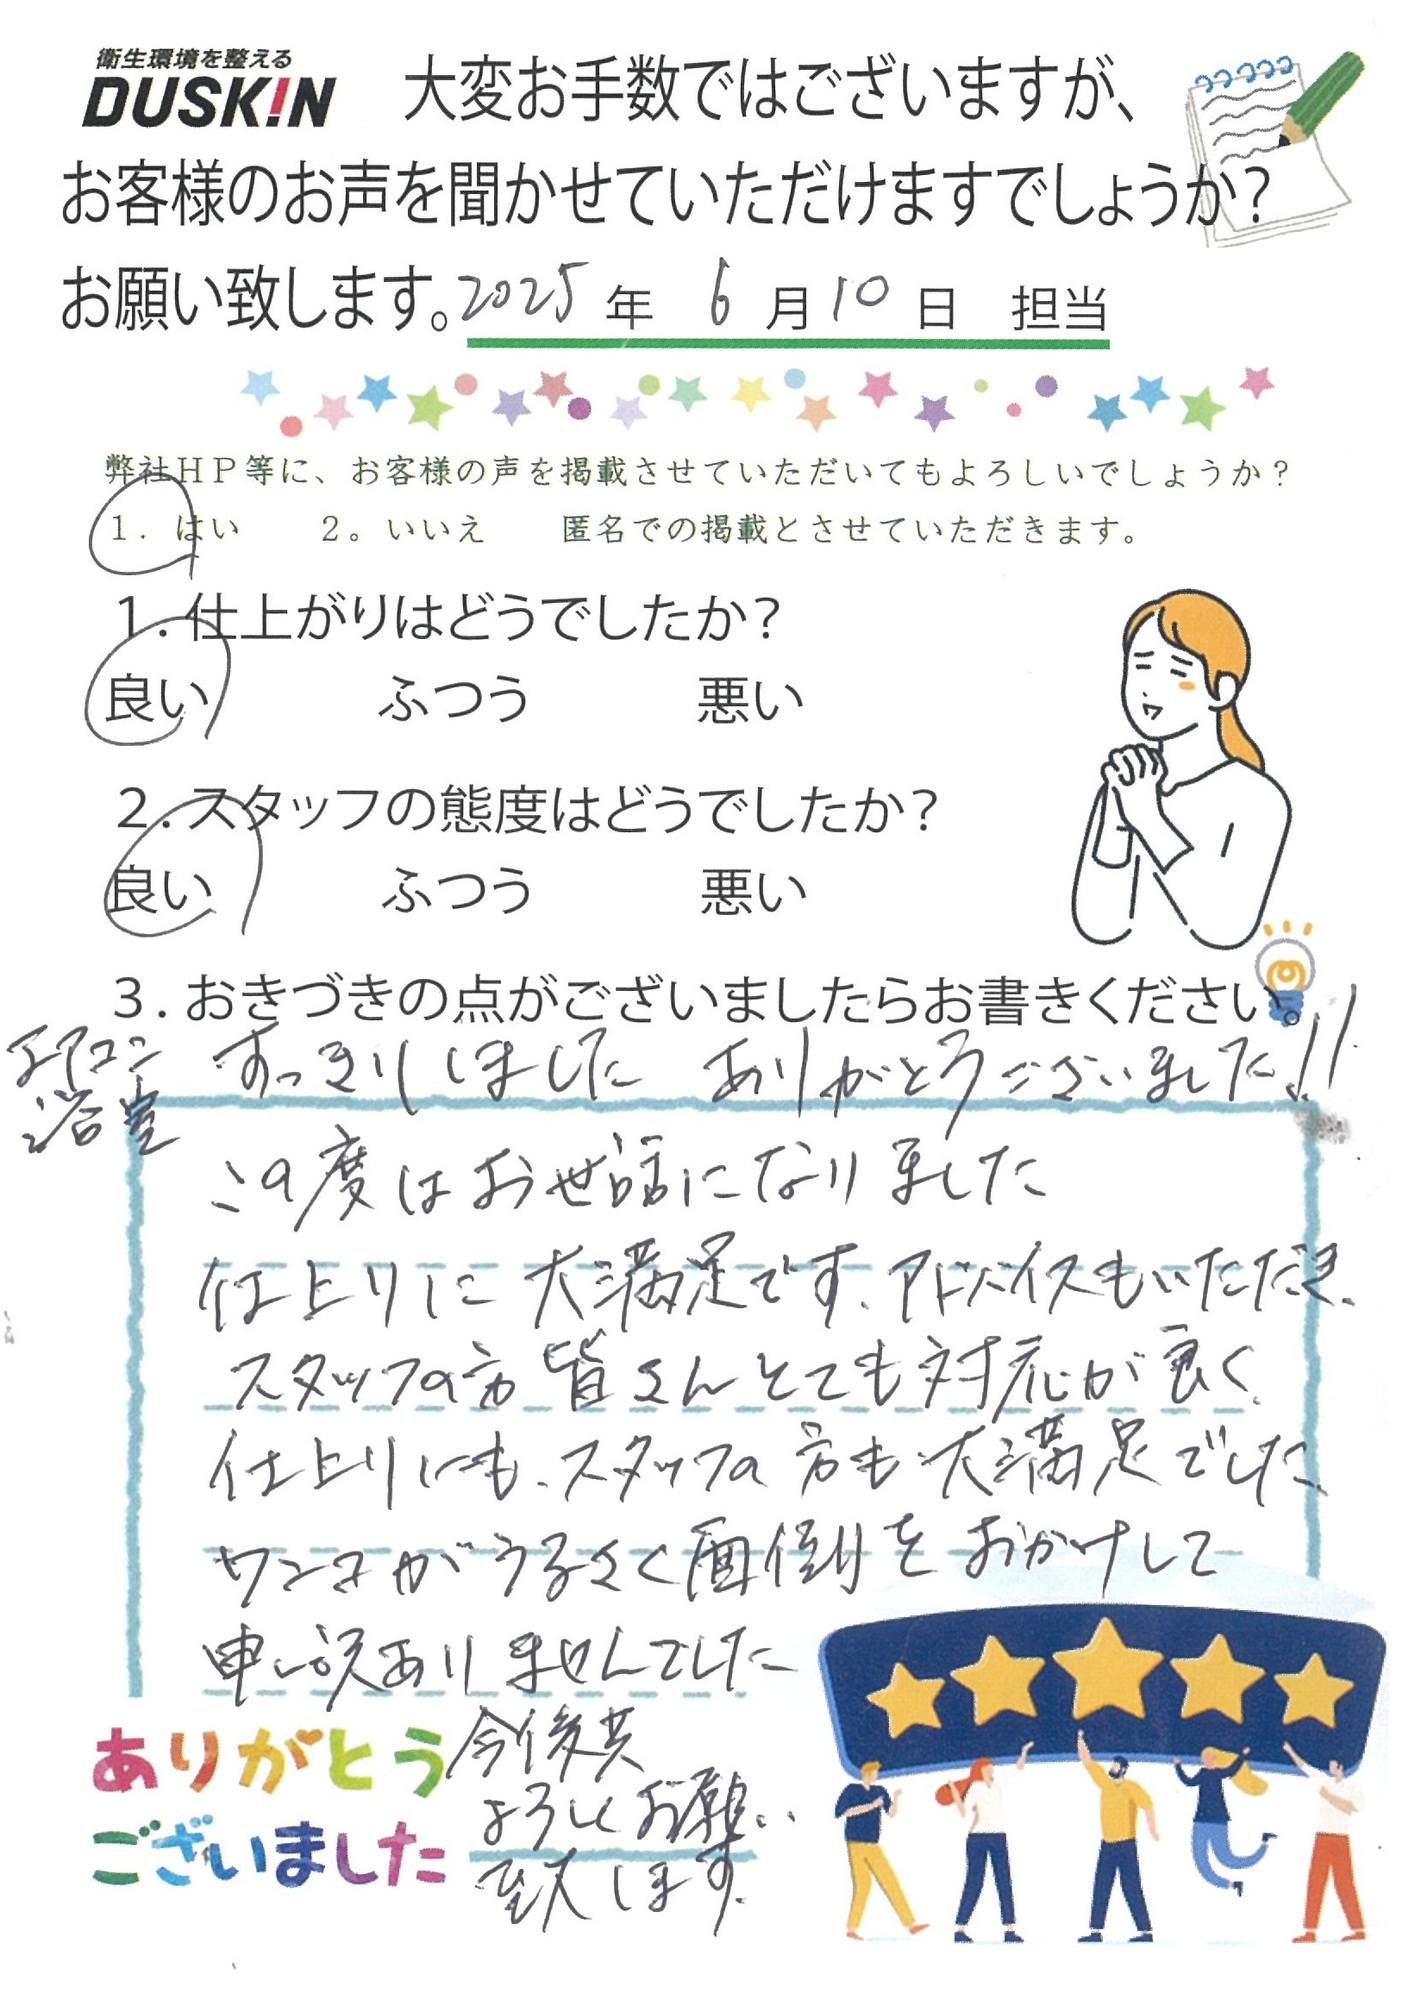 衛生環境を整える
DUSKIN 大変お手数ではございますが、
お客様のお声を聞かせていただけますでしょうか?
お願い致します。2025年 6月10日 担当
弊社HP等に、お客様の声を掲載させていただいてもよろしいでしょうか?
1. はい 2。いいえ 匿名での掲載とさせていただきます。
1.仕上がりはどうでしたか?
良い ふつう 悪い
2.スタッフの態度はどうでしたか?
良い ふつう 悪い
3.おきづきの点がございましたらお書きください。
エアコン
浴室
すっきりしました ありがとうございました!!
この度はお世話になりました
仕上りに大満足です、アドバイスもいただき、
スタッフの方皆さんとても対応が良く
仕上りにも、スタッフの方も大満足でした
ワンコがうるさく面倒をおかけして
申し訳ありませんでした
今後共
よろしくお願い
致します。
ありがとう
ございました